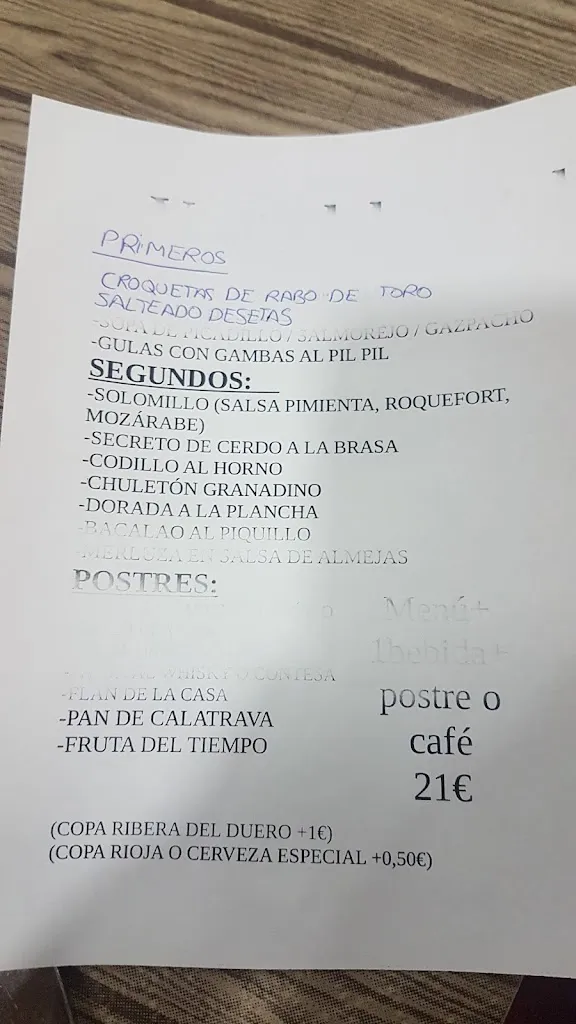 PRIMEROS
CROQUETAS DE RABO DE TORO
SALTEADO DESETAS
-SOPA DE PICADILLO / SALMOREJO / GAZPACHO
-GULAS CON GAMBAS AL PIL PIL
SEGUNDOS:
-SOLOMILLO (SALSA PIMIENTA, ROQUEFORT,
MOZÁRABE)
-SECRETO DE CERDO A LA BRASA
-CODILLO AL HORNO
-CHULETÓN GRANADINO
-DORADA A LA PLANCHA
-BACALAO AL PIQUILLO
-MERLUZA EN SALSA DE ALMEJAS
POSTRES:
WHISKY O CONTESA
-FLAN DE LA CASA
-PAN DE CALATRAVA
-FRUTA DEL TIEMPO
Menú+
1bebida+
postre o
café
21€
(COPA RIBERA DEL DUERO +1€)
(COPA RIOJA O CERVEZA ESPECIAL +0,50€)